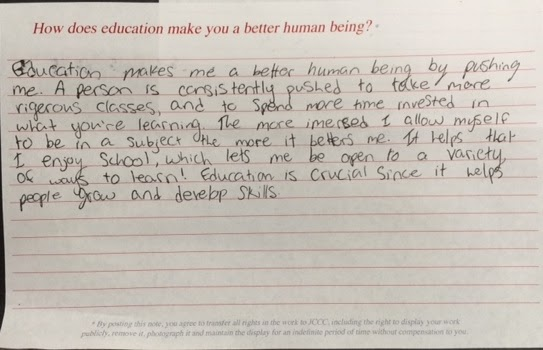 How does education make you a better human being? *
Education makes me a better human being by pushing
me. A person is consistently pushed to take more
rigerous classes, and to spend more time invested in
what you're learning. The more imersed I allow myself
to be in a subject the more it betters me. It helps that
I enjoy School, which lets me be open to a variety
of ways to learn! Education is crucial since it helps
people grow and develop skills.
* By posting this note, you agree to transfer all rights in the work to JCCC, including the right to display your work
publicly, remove it, photograph it and maintain the display for an indefinite period of time without compensation to you.